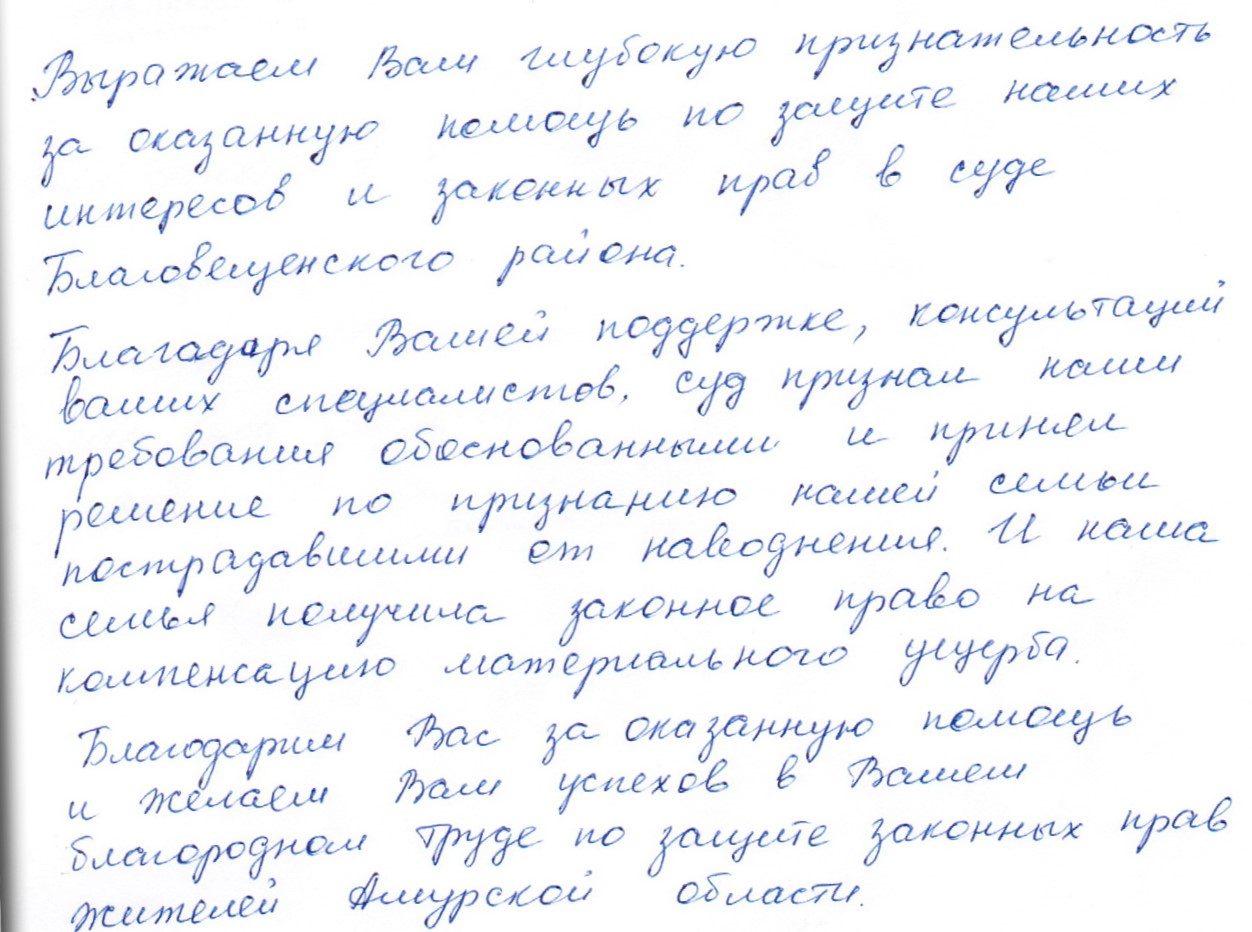 Выражаем Вам глубокую признательность
за оказанную помощь по защите наших
интересов и законных прав в суде
Благовещенского района.
Благадаря Вашей поддержке, консультаций
ваших специалистов, суд признал наши
требования обоснованными и принял
решение по признанию нашей семьи
пострадавшими от наводнения. И наша
семья получила законное право на
компенсацию материального ущерба.
Благодарим Вас за оказанную помощь
и желаем Вам успехов в Вашем
благородном труде по защите законных прав
жителей Амурской области.